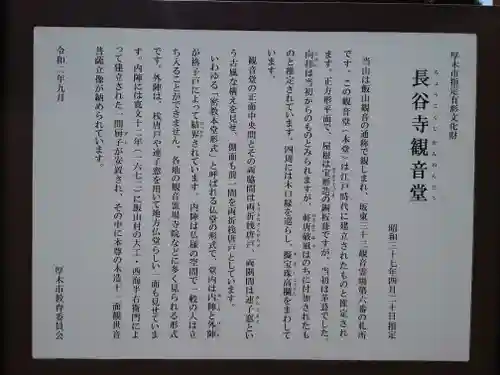 厚木市指定有形文化財
長谷寺観音堂
ちょうこくじかんのんどう
昭和三十七年四月二十日指定
当山は飯山観音の通称で親しまれ、坂東三十三観音霊場第六番の札所
です。この観音堂(本堂)は江戸時代に建立されたものと推定され
ます。正方形平面で、屋根は宝形造の銅板葺ですが、当初は茅葺でした。
向拝は当初からのものとみられますが、軒唐破風はのちに付加されたも
のと推定されています。四周には木口縁を巡らし、擬宝珠高欄をまわして
います。
観音堂の正面中央間とその両脇間は両折桟唐戸、両隅間は連子窓とい
う古風な構えを見せ、側面も前一間を両折桟唐戸としています。
いわゆる「密教本堂形式」と呼ばれる仏堂の形式で、堂内は内陣と外陣
が格子戸によって結界されています。内陣は仏様の空間で一般の人は立
ち入ることができません。各地の観音霊場寺院などに多く見られる形式
です。外陣は、桟唐戸や連子窓を用いて地方仏堂らしい一面も見せていま
す。内陣には寛文十二年(一六七二)に飯山村の大工・西海半右衛門によ
って建立された一間厨子が安置され、その中に本尊の木造十一面観世音
菩薩立像が納められています。
令和二年九月
厚木市教育委員会